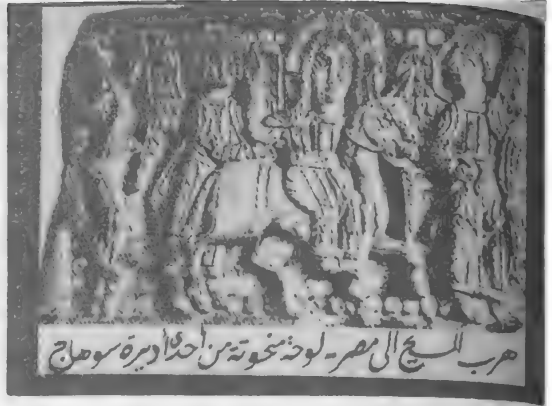 هرب المسيح الى مصر - لوحة منحوتة من احد أديرة سوهاج